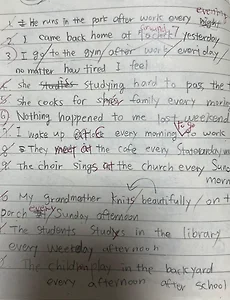 1. He runs in the park after work every evening
2. I came back home at around 7 yesterday
3) I go to the gym after work everyday
no matter how tired I feel
4. she studying hard to pass the
5. she cooks for family every
6) Nothing happened to me last weekend
7. I wake up every morning to go to work
8. They at the cafe every
9. The choir sings at the church every
morn
My grandmother knits beautifully on t
porch every Sunday afternoon
The students in the library
every weekday afternoon
The children play in the backyard
every afternoon after school